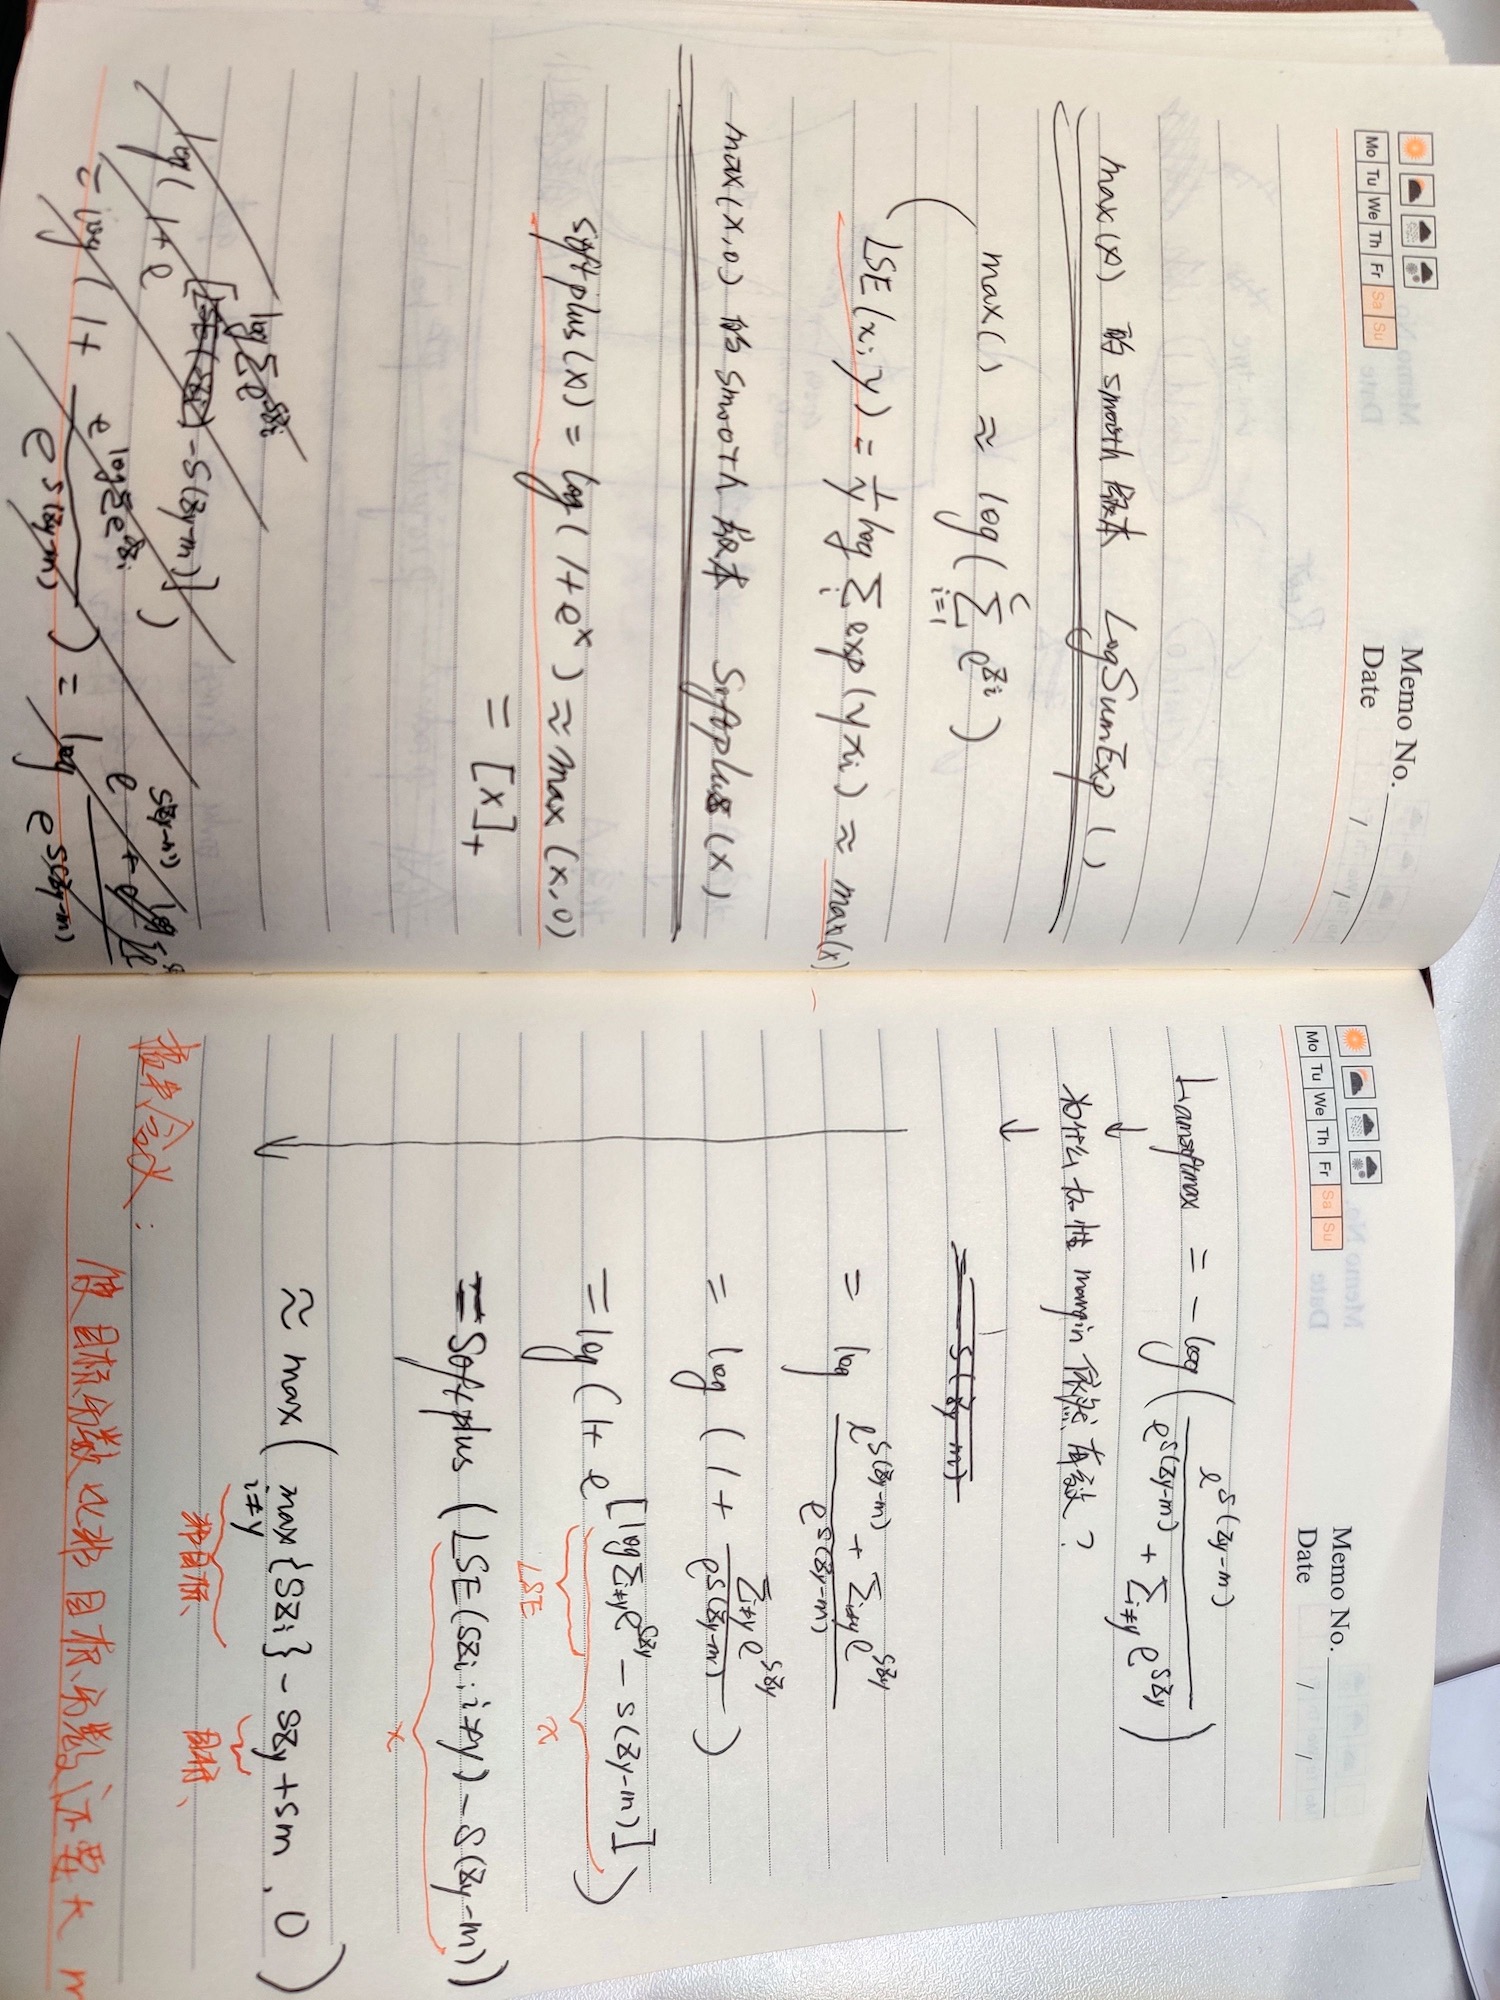 Memo No.
Mo Tu We Th Fr Sa Su
Date / /
max(x) 的 smooth 版本 LogSumExp ( )
( max( ) ≈ log( ∑_{i=1}^{C} e^{z_i} )
LSE(x; γ) = 1/γ log ∑_i exp(γ x_i) ≈ max(x)
max(x,0) 的 smooth 版本 Softplus(x)
softplus(x) = log(1+e^x) ≈ max(x,0)
= [x]_+
log ∑ e^{sz_i}
log( 1 + e^{[LSE(sz_i) - s(z_y-m)]} )
= log( 1 + e^{log∑e^{sz_i}} / e^{s(z_y-m)} ) = log e^{s(z_y-m)} + e^{log ∑} / e^{s(z_y-m)}
Memo No.
Mo Tu We Th Fr Sa Su
Date / /
L_{amsoftmax} = - log ( e^{s(z_y-m)} / e^{s(z_y-m)} + ∑_{i≠y} e^{sz_y} )
↓
为什么加性 margin 依然有效?
↓
= - s(z_y-m)
= log e^{s(z_y-m)} + ∑_{i≠y} e^{sz_y} / e^{s(z_y-m)}
= log ( 1 + ∑_{i≠y} e^{sz_y} / e^{s(z_y-m)} )
= log ( 1 + e^{[log∑_{i≠y} e^{sz_y} - s(z_y-m)]} )
LSE x
= Softplus ( LSE(sz_i ; i≠y) - s(z_y-m) )
x
≈ max ( max_{i≠y} {sz_i} - sz_y + sm , 0 )
非目标、 目标、
物理含义:
使目标分数比非目标分数还要大 m